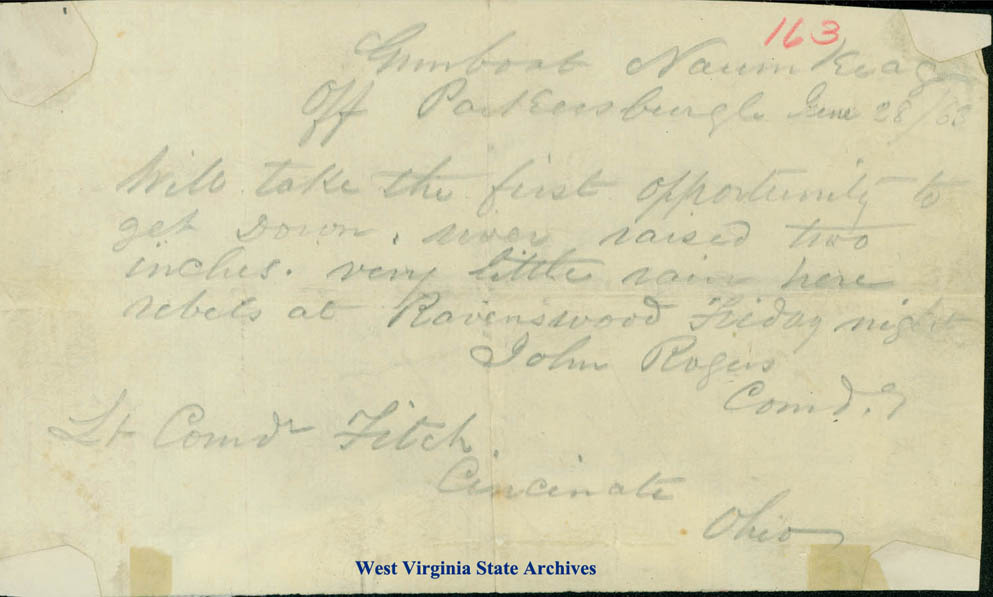 163
Gunboat Naumkeag
Off Parkersburgh June 28/63
Will take the first opportunity to
get down. river raised two
inches. very little rain here
rebels at Ravenswood Friday night
John Rogers
Comd.g
Lt Comdr Fitch
Cincinate
Ohio
West Virginia State Archives